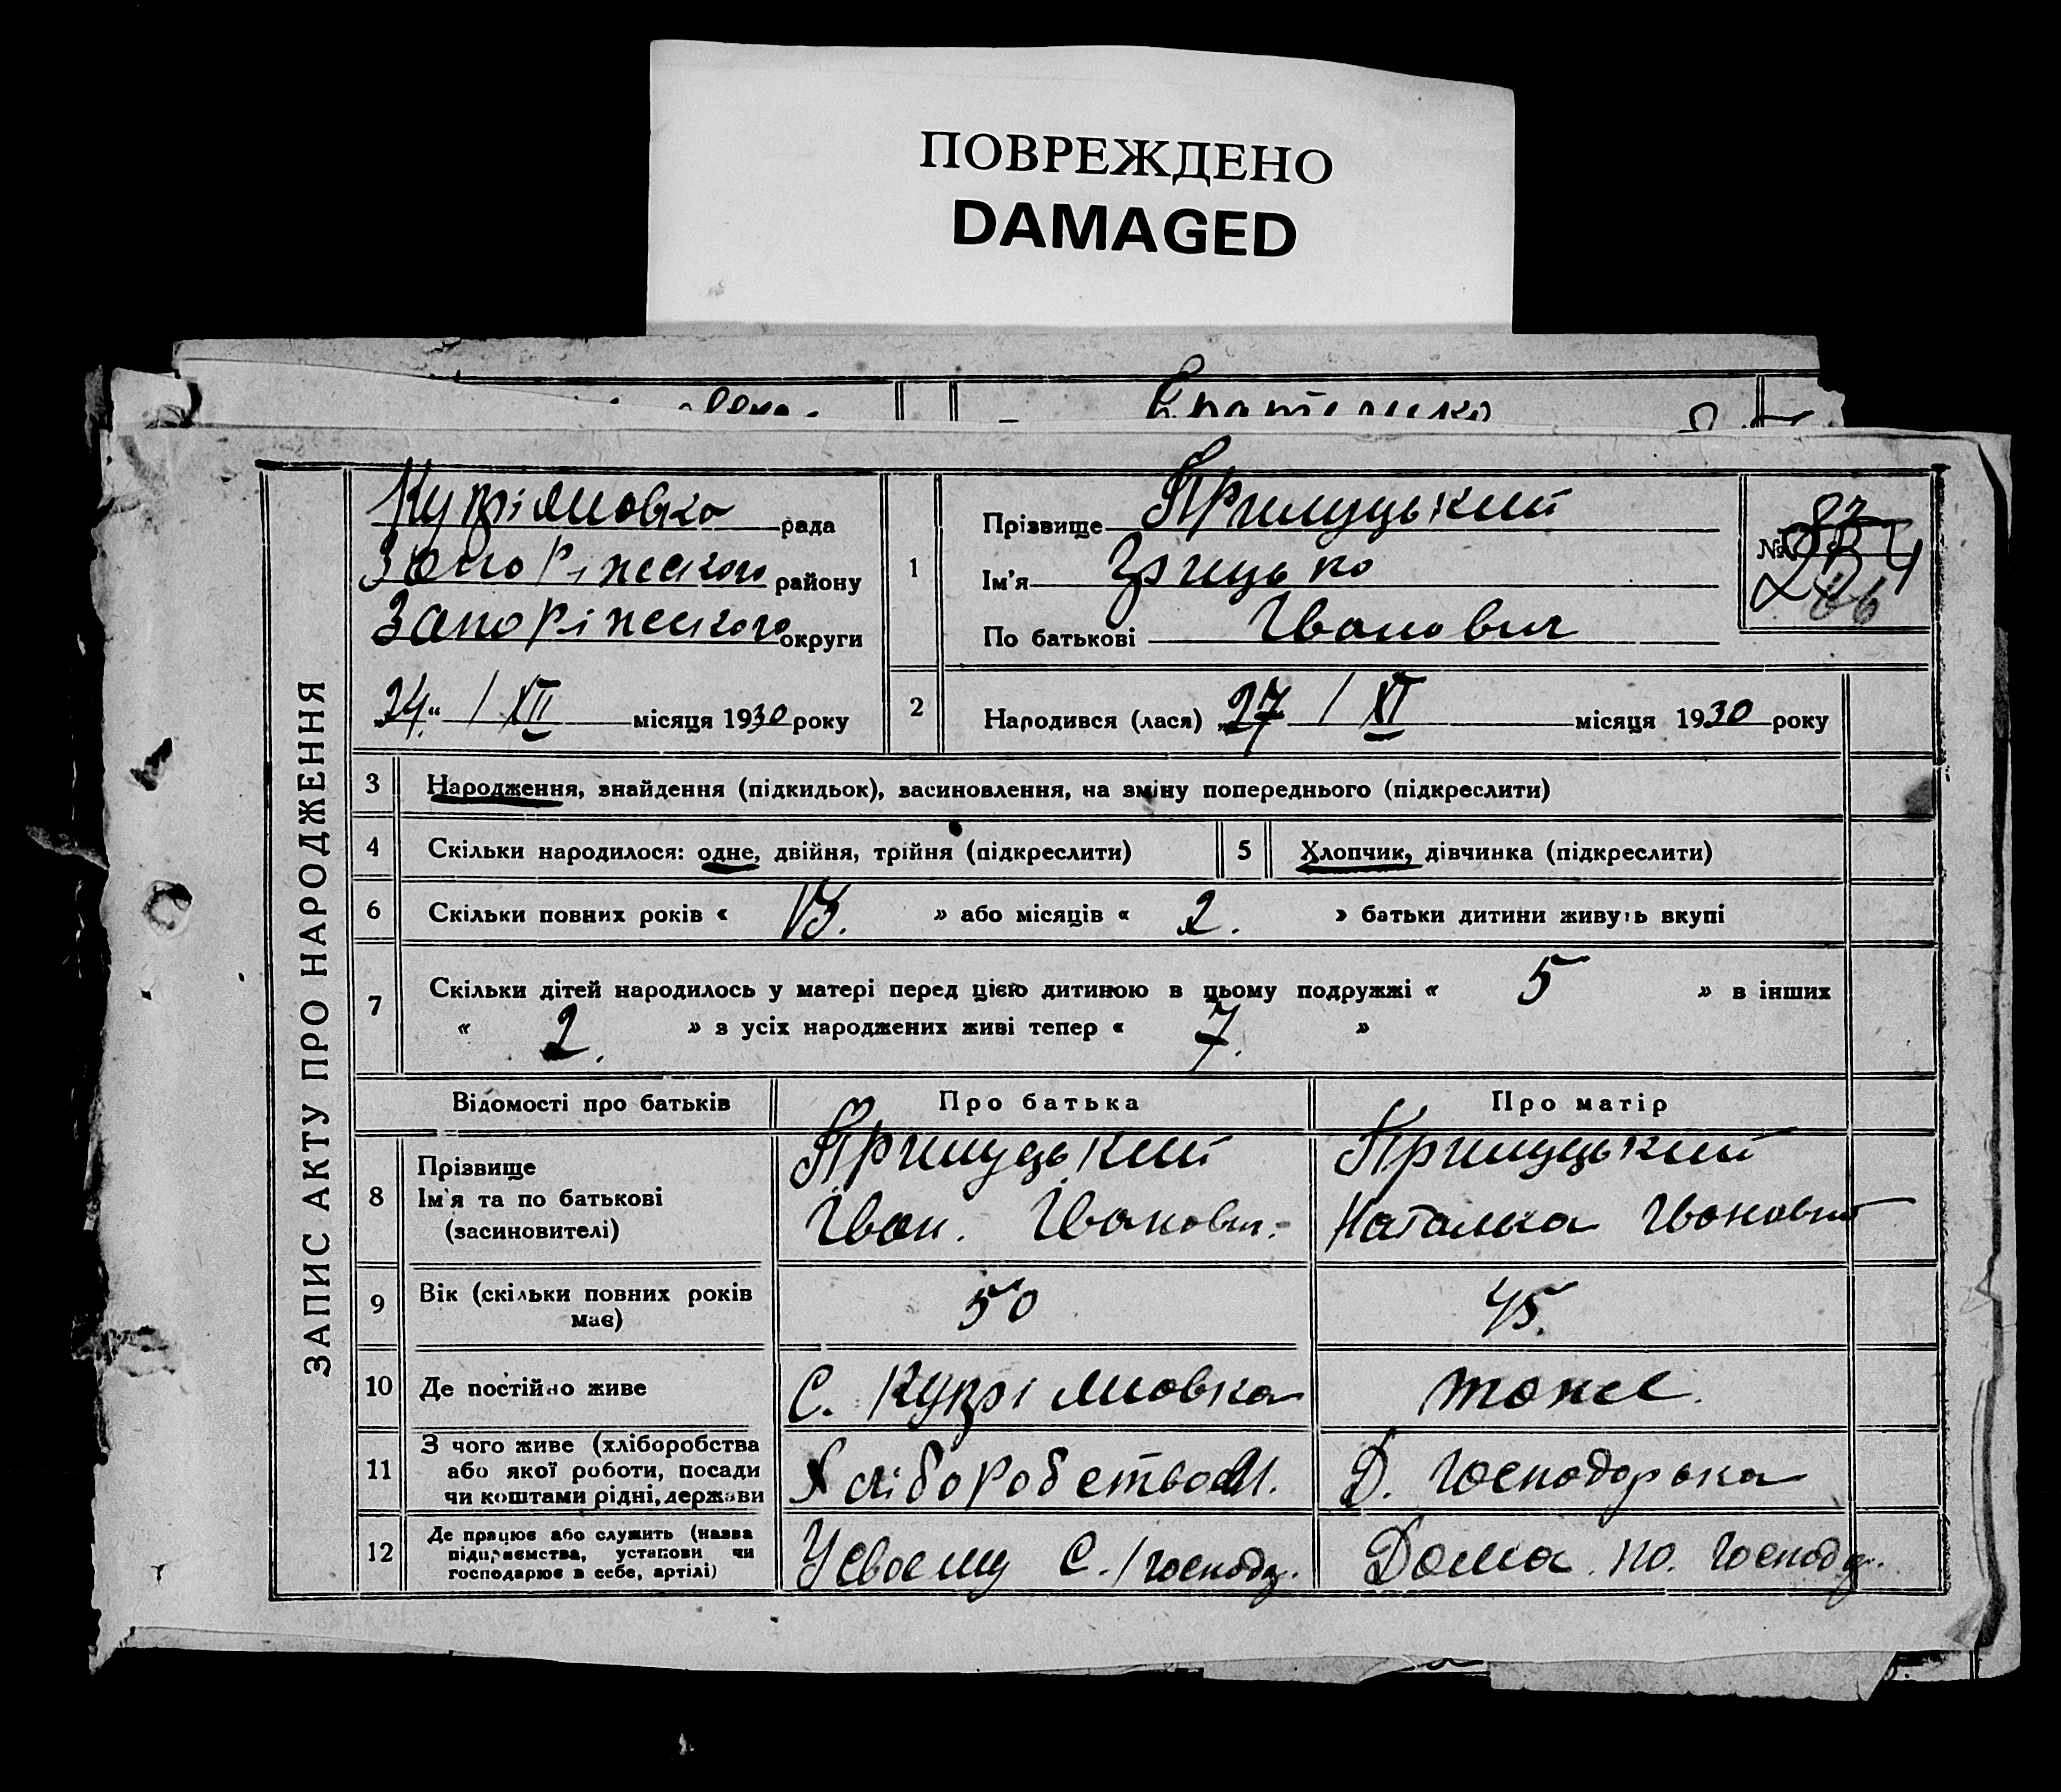 ПОВРЕЖДЕНО
DAMAGED
ЗАПИС АКТУ ПРО НАРОДЖЕННЯ
Купріяновка рада
Запоріжського району
Запоріжського округи
„24“ / XII місяця 1930 року
1
Прізвище Прилуцький
Ім'я Грицько
По батькові Іванович
№
2
Народився (лася) „27 / XI місяця 1930 року
3 Народження, знайдення (підкидьок), засиновлення, на зміну попереднього (підкреслити)
4 Скільки народилося: одне, двійня, трійня (підкреслити) 5 Хлопчик, дівчинка (підкреслити)
6 Скільки повних років « » або місяців « 2. » батьки дитини живуть вкупі
7 Скільки дітей народилось у матері перед цією дитиною в цьому подружжі « 5 » в інших
« 2. » з усіх народжених живі тепер « 7. »
Відомості про батьків Про батька Про матір
8 Прізвище Прилуцький Прилуцький
Ім'я та по батькові Іван. Іванович. Наталка
(засиновителі)
9 Вік (скільки повних років має) 50 45.
10 Де постійно живе С. Купріяновка тоже.
11 З чого живе (хліборобства або якої роботи, посади чи коштами рідні, держави Хліборобством. Д. Господорька
12 Де працює або служить (назва підприємства, установи чи господарює в себе, артілі) У своєму С./господ. Дома по. господ.